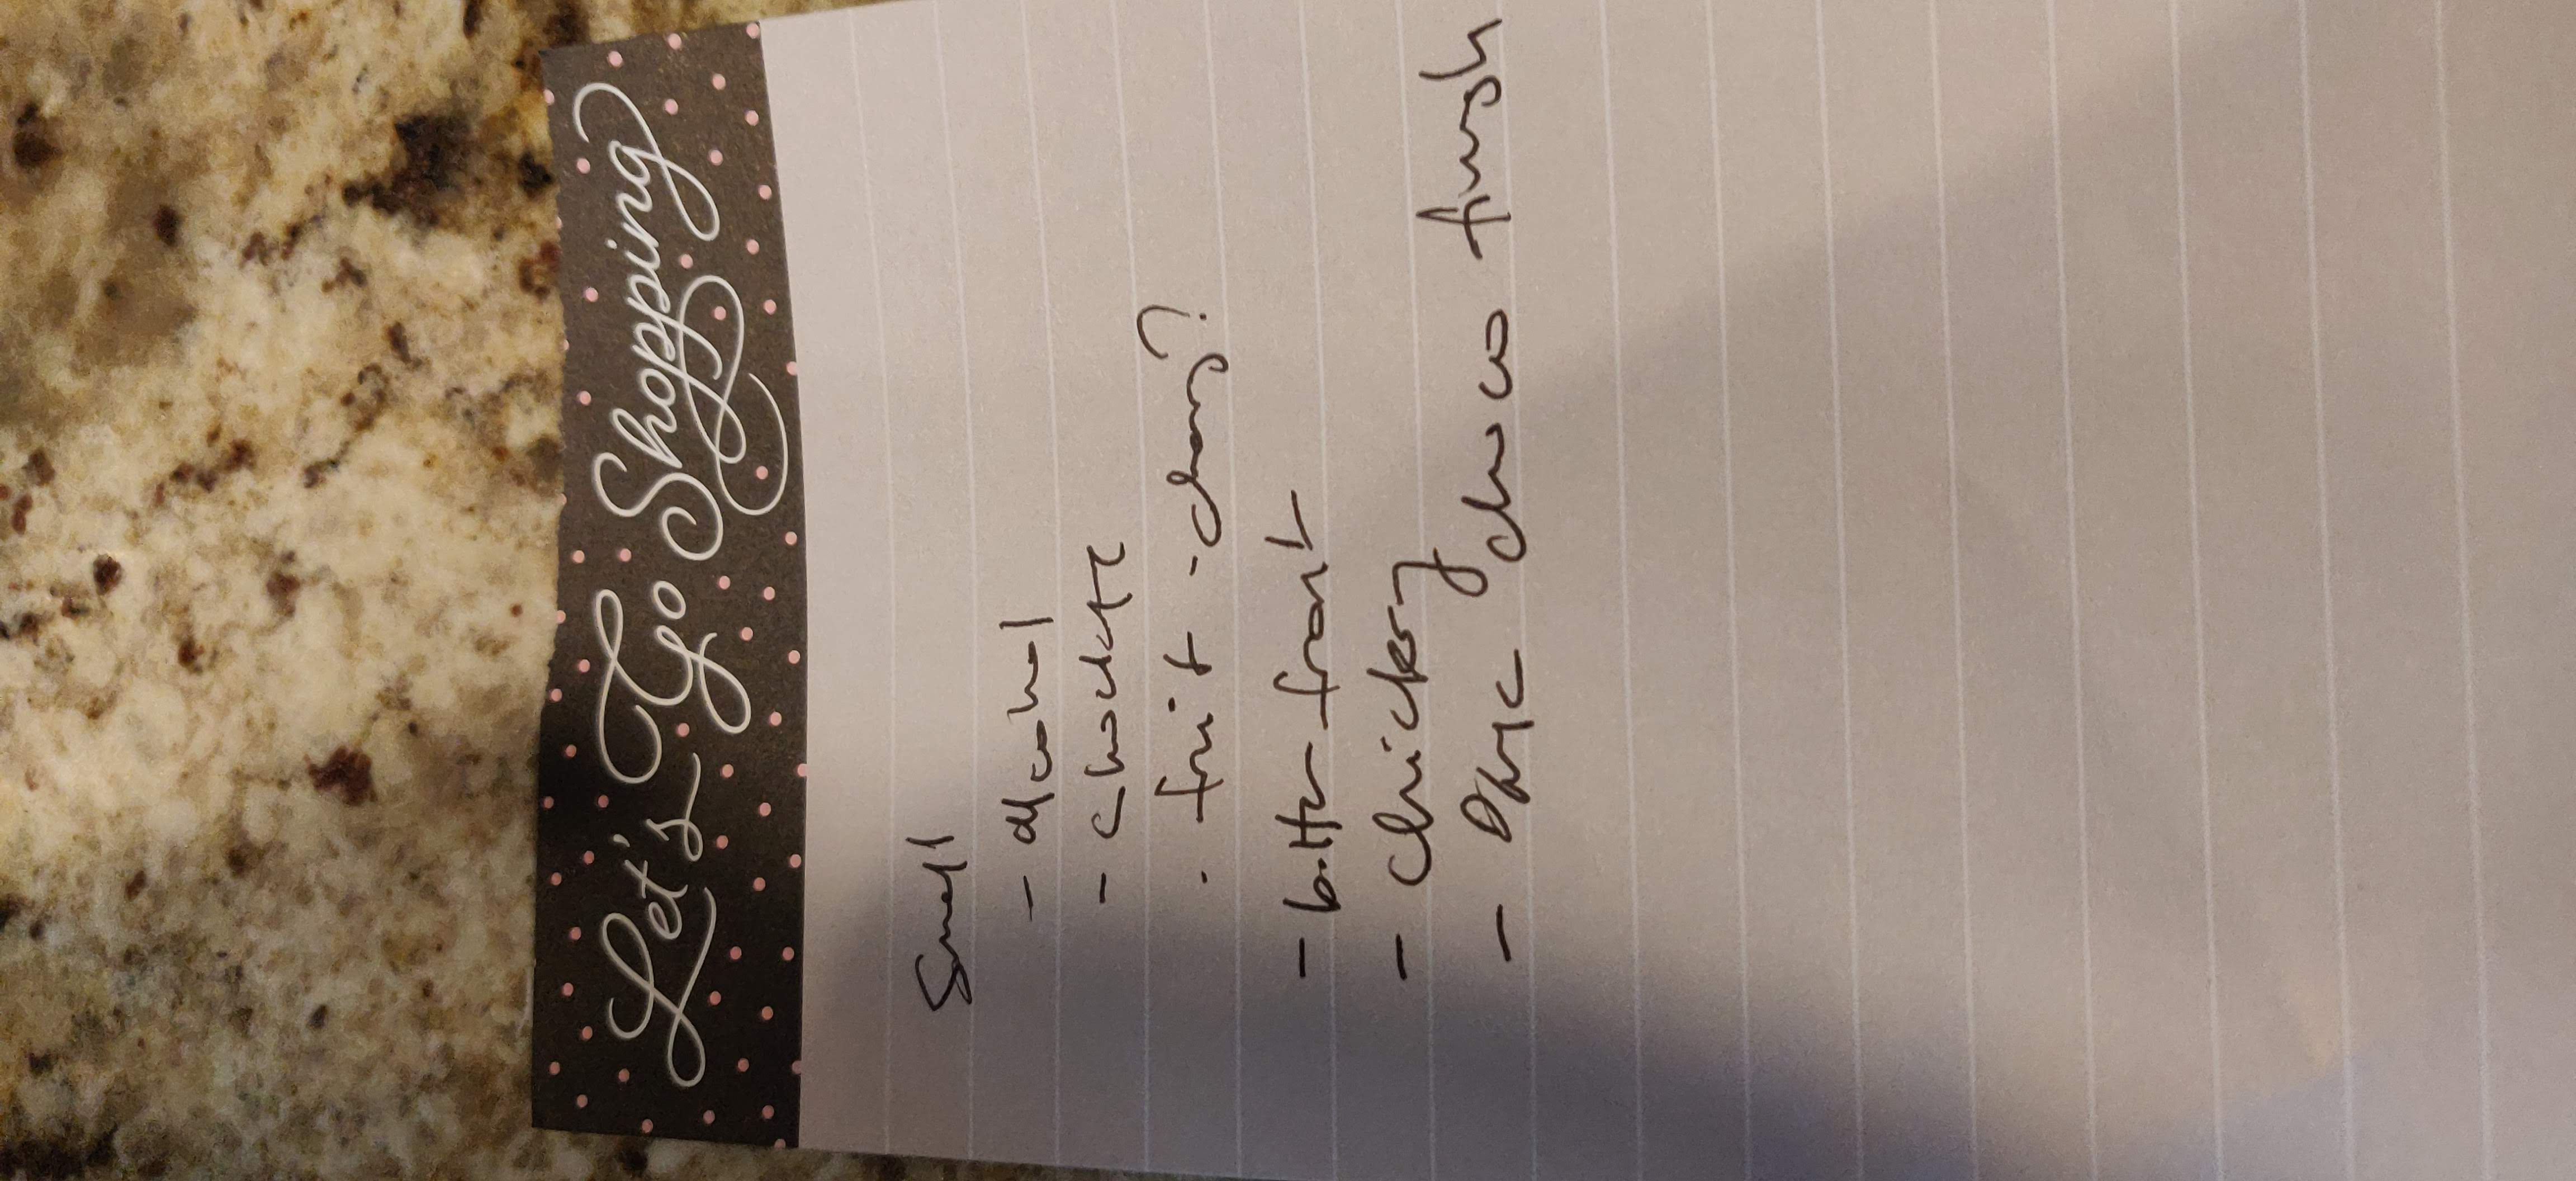 Let's Go Shopping
Smell
- alcohol
- Chocolate
. fruit - cherry?
- bitter front
- Chickery
- Dark choco finish